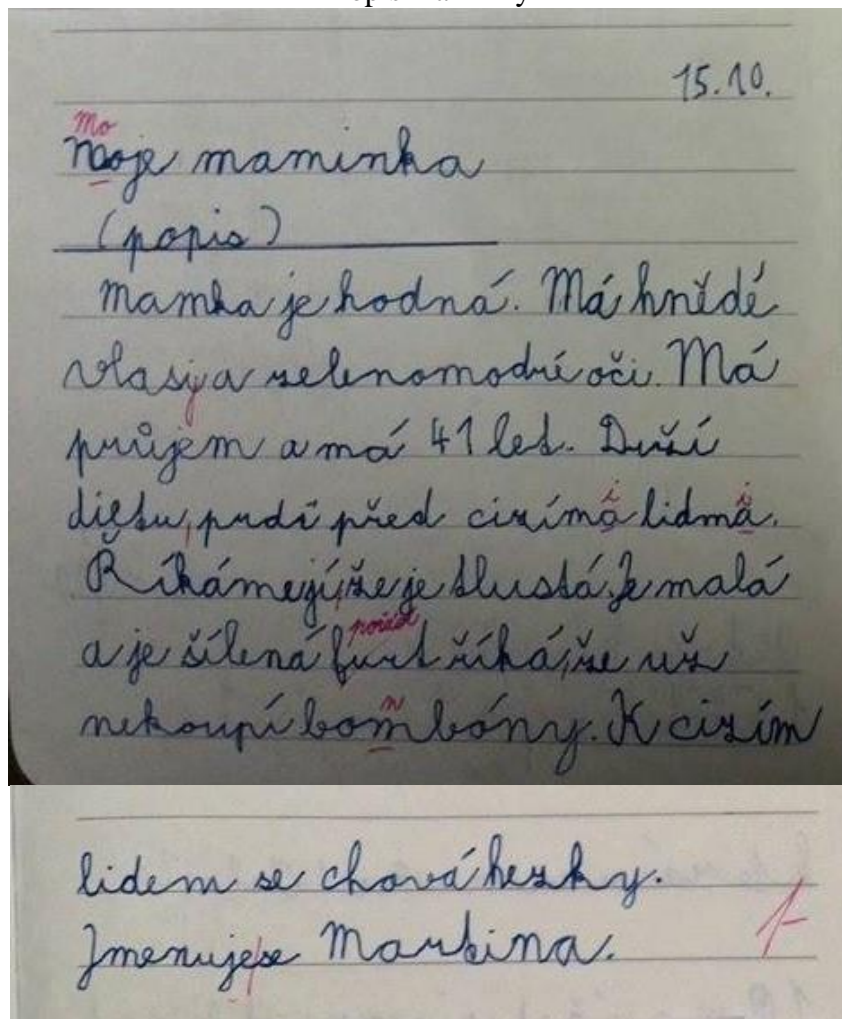 15.10.
Mo
Moje maminka
(popis)
Mamka je hodná. Má hnědé
vlasy a zelenomodré oči. Má
průjem a má 41 let. Duží
dietu, prdí před cizíma lidma.
i i
Říkáme jí, že je tlustá. Je malá
a je šílená furt říká, že už
pořád
nekoupí bombóny. K cizím
n
lidem se chová hezky.
Jmenuje se Martina.
1-